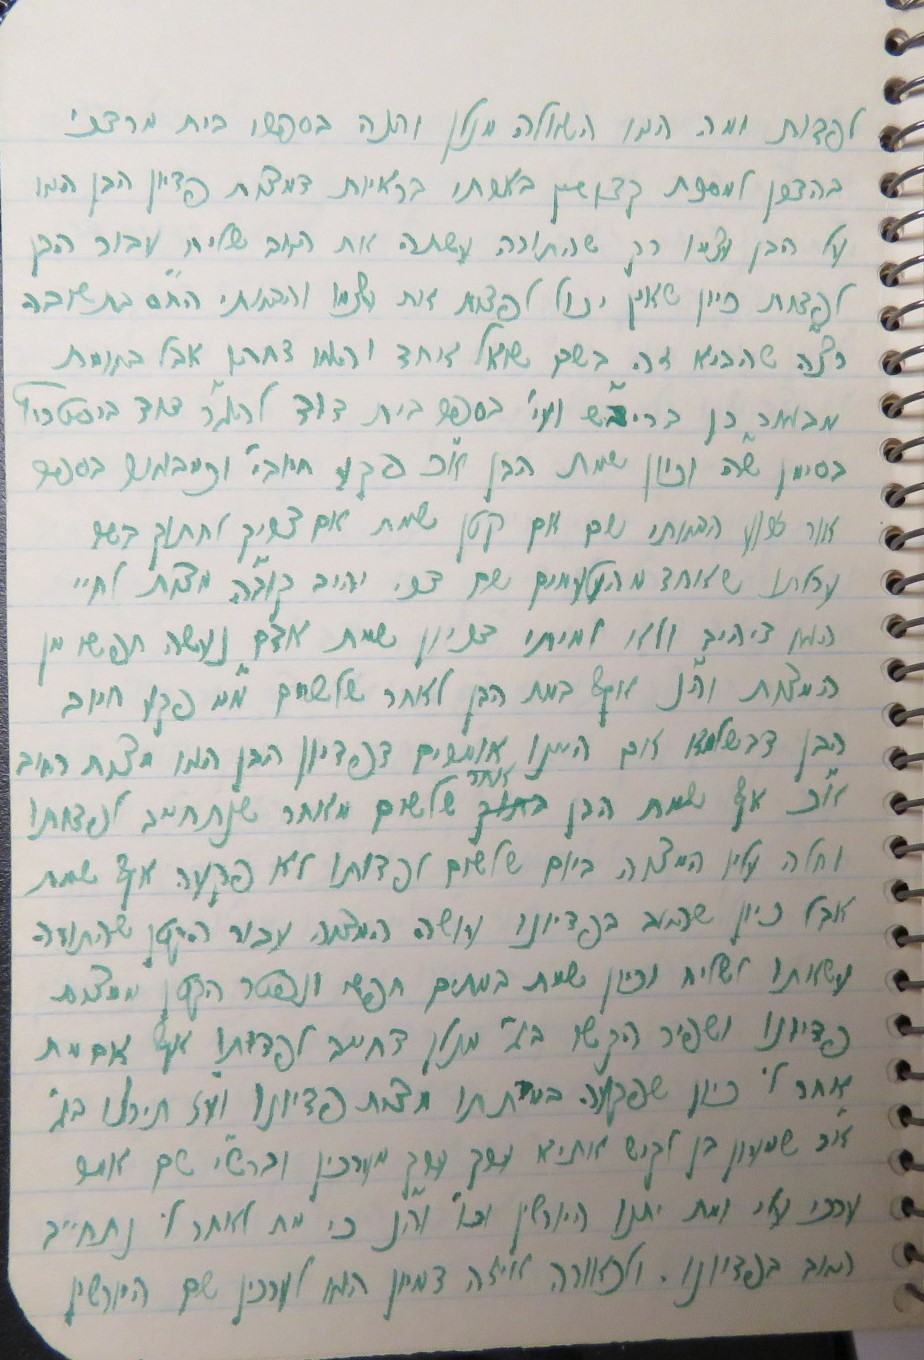 לפדות ומה המו השאלה מנלן והנה בספרי בית מרצני
בהצפן למספת בארתי בראיות דמצות פדיון הבן המו
על הבן עצמו רק שהתורה עשתה את האב שליח עבור הבן
לפדות כיון שאין יכול לפדות את עצמו והבאתי החס בתשובה
שהביא זה בשם שואל אחד והמו דחהו אבל באמת
מבואר כן בריב״ש ועי׳ בספר בית דוד להגר״ דוד
בסימן ש״ה וכיון שמת הבן א״כ פקע חיובי׳ וכמבואר בספר
אור הבאתי שם אם קטן שמת אם צריך לחתוך בשר
ערלתו שאחד מהטעמים שם דכי יהיב קוב״ה מצות לחיי
המו דיהיב ולא למיתי דכיון שמת אדם נעשה חפשי מן
המצות וה״נ אף במת הבן לאחר שלשים מ״מ פקע חיוב
הבן דבשלמא אם היינו אומרים דפדיון הבן המו מצות האב
א״כ אף שמת הבן אחר שלשים מאחר שנתחייב לפדותו
וחלה עליו המצוה ביום שלשים לפדותו לא פקעה אף שמת
אבל כיון שהאב בפדיונו עושה המצוה עבור הקטן שהתורה
עשאתו לשליח וכיון שמת במתים חפשי ונפטר הקטן ממצות
פדיונו ושפיר הקשו בג׳ מנלן דחייב לפדותו אף אם מת
אחר ל׳ כיון שפקעה במיתתו מצות פדיונו וע״ז תירצו בג׳
א״ר שמעון בן לקיש אתיא ערך ערך מערכין וברש״י שם אומר
ערכי עלי ומת יתנו היורשין וכו׳ וה״נ כי מת לאחר ל׳ נתחייב
האב בפדיונו. ולכאורה לאיזה דמיון המו לערכין שם היורשין